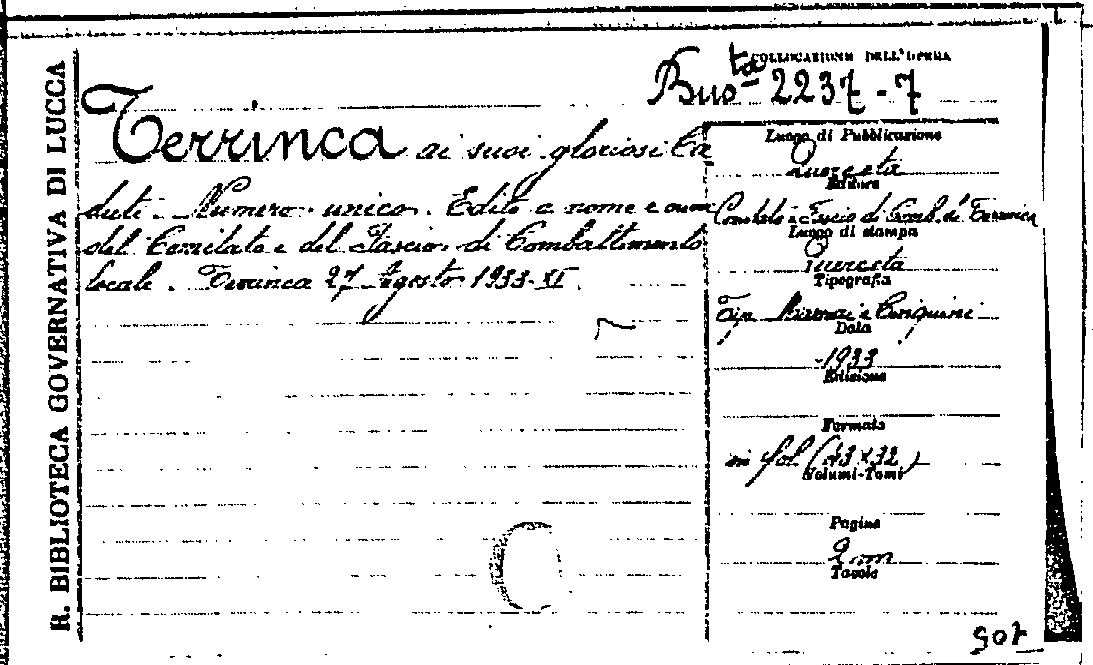 R. BIBLIOTECA GOVERNATIVA DI LUCCA
COLLOCAZIONE DELL'OPERA
Bus^ta 2237-7
Terrinca ai suoi gloriosi Ca
duti. Numero unico. Edito a nome e cura
del Comitato e del Fascio di Combattimento
locale. Terrinca 27 Agosto 1933-XI.
Luogo di Pubblicazione
Querceta
Editore
Comitato e Fascio di Comb. di Terrinca
Luogo di stampa
Querceta
Tipografia
Tip.
Data
1933
Edizione
Formato
in fol. (43x32)
Volumi-Tomi
Pagine
2 nn
Tavole
C